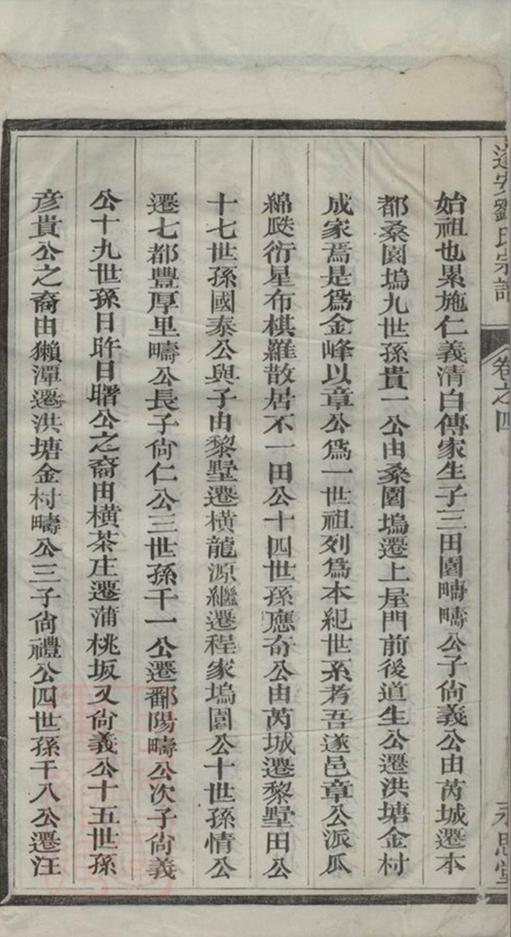 遂安劉氏宗譜
卷之四
永思堂
始祖也累施仁義清白傳家生子三田園疇疇公子尙義公由芮城遷本
都桑園塢九世孫貴一公由桑園塢遷上屋門前後道生公遷洪塘金村
成家焉是爲金峰以章公爲一世祖列爲本紀世系考吾遂邑章公派瓜
綿瓞衍星布棋羅散居不一田公十四世孫應奇公由芮城遷黎墅田公
十七世孫國泰公與子由黎墅遷橫龍源繼遷程家塢園公十世孫情公
遷七都豐厚里疇公長子尙仁公三世孫千一公遷鄱陽疇公次子尙義
公十九世孫日昨日㬢公之裔由橫茶庄遷蒲桃坂又尙義公十五世孫
彥貴公之裔由獺潭遷洪塘金村疇公三子尙禮公四世孫千八公遷汪